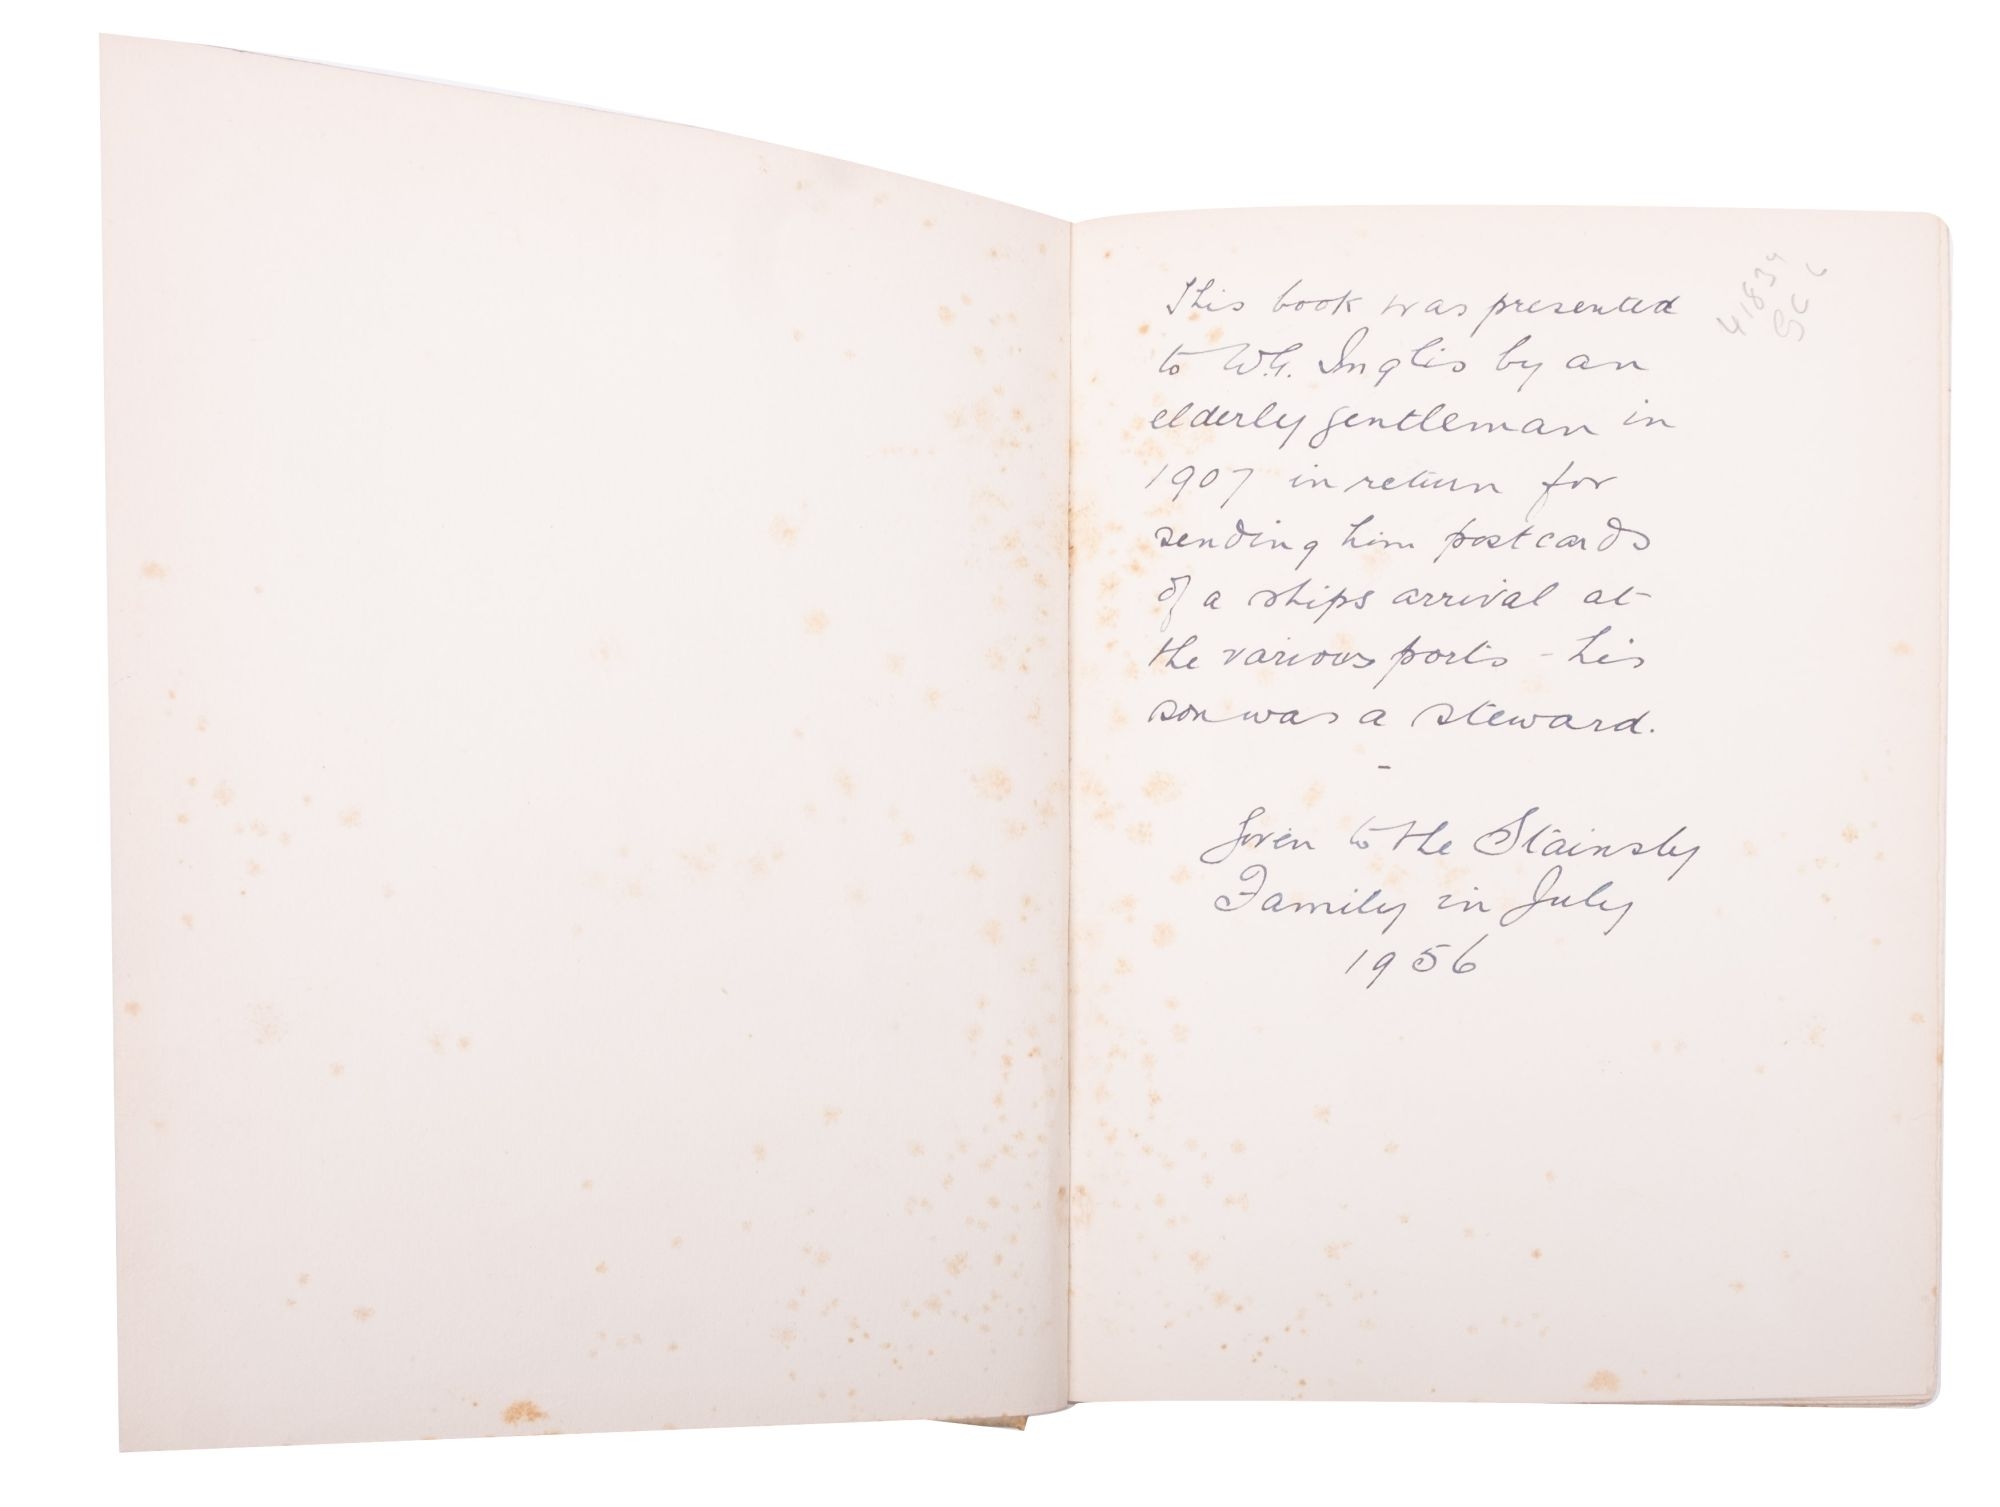 This book was presented
to W.G. Inglis by an
elderly gentleman in
1907 in return for
sending him postcards
of a ships arrival at
the various ports - his
son was a steward.
-
Given to the Stainsby
Family in July
1956